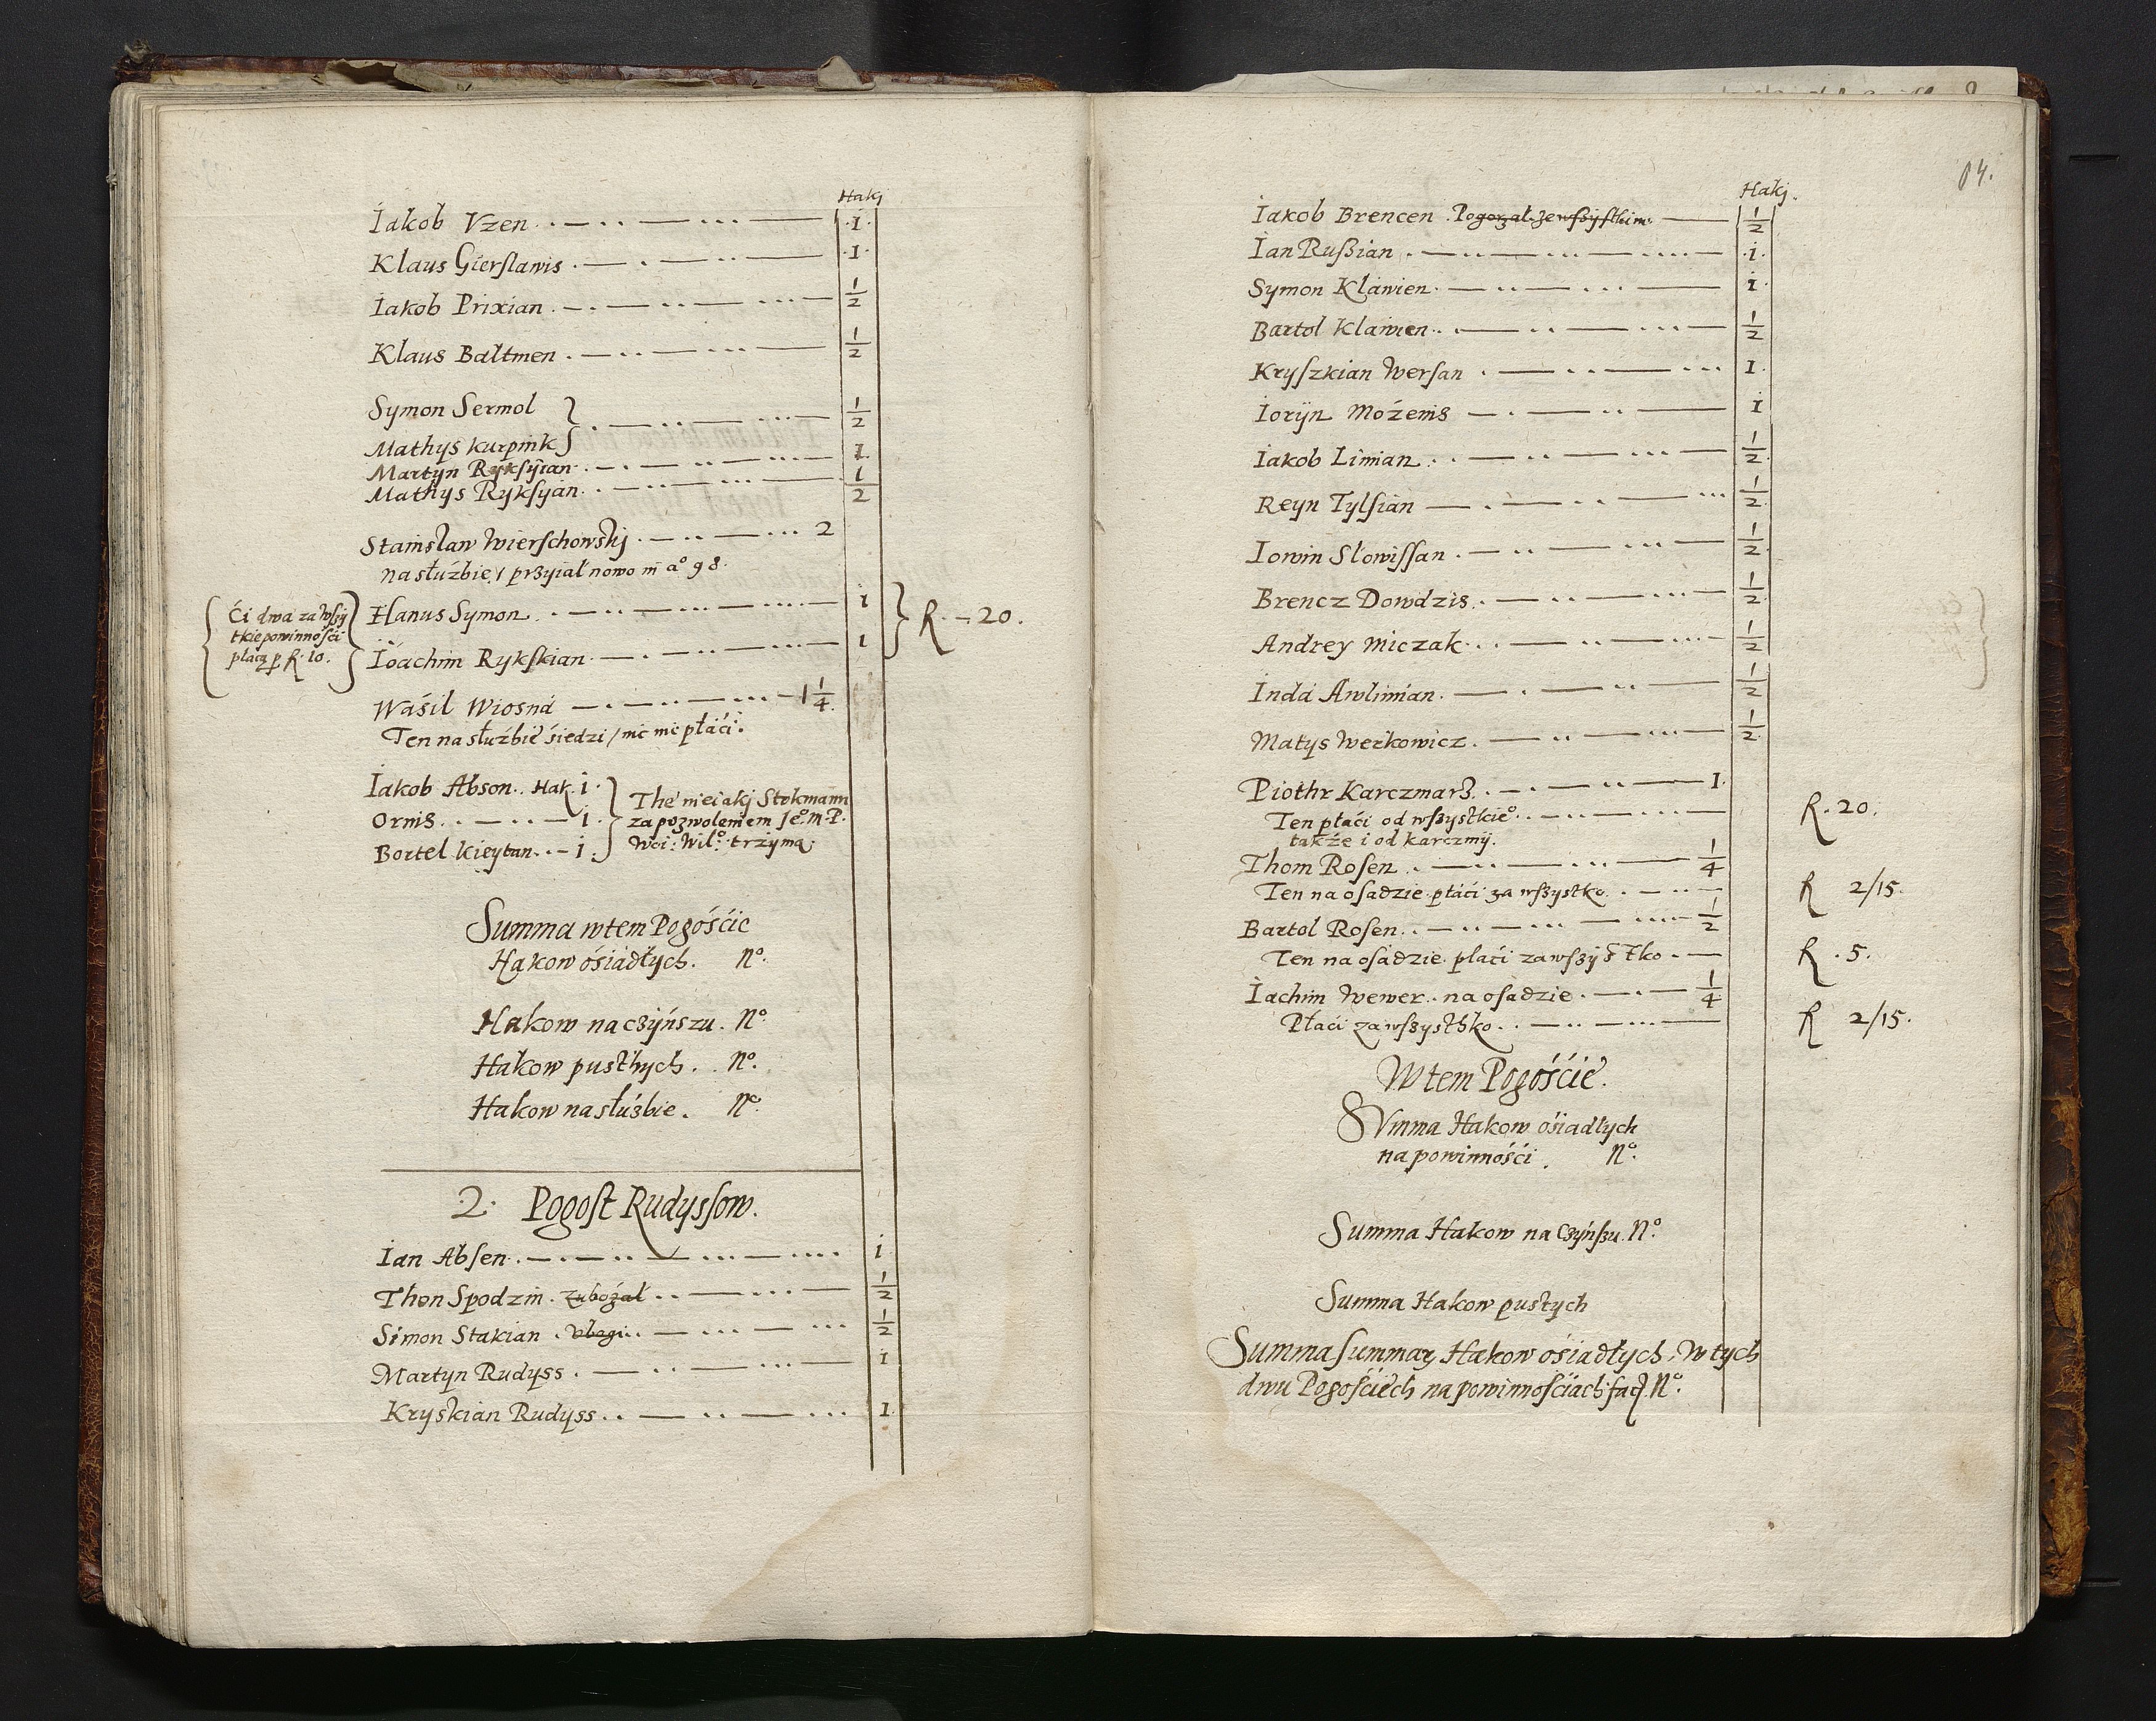 Hakj
Iakob Vzen 1
Klaus Gierslawis 1
Iakob Prixian 1/2
Klaus Baltmen 1/2
Symon Sermol
1/2
Mathys Kurpink
Martyn Ryksyian 1
Mathys Ryksyan 1/2
Stanisław Wierschowskj 2
na służbie / przyiał nowo in a° 98.
Ći dwa za wszy
tkie powinnośći
płacą p R. 10.
Hanus Symon 1
R. 20.
Ioachim Rykskian 1
Waśil Wiosna 1 1/4
Ten na służbie śiedzi / nic nie płaći.
Iakob Abson. Hak. 1
Ornis 1
Bortel Kieytan 1
The nieiakj Stokmann
za pozwoleniem Je° M. P.
Woi: Wil°: trzyma.
Summa w tem Pogośćie
Hakow ośiadłych. N°.
Hakow na czyńszu. N°.
Hakow pusthych. N°.
Hakow na słuzbie. N°.
2. Pogost Rudyssow.
Ian Absen 1
Thon Spodzin. zubożał 1/2
Simon Stakian. Vbogi 1/2
Martyn Rudyss 1
Kryskian Rudyss 1
04.
Hakj.
Iakob Brencen. Pogorzał ze wszystkim 1/2
Ian Rußian 1
Symon Klawien 1
Bartol Klawien 1/2
Kryszkian Wersan 1
Ioryn Możenis 1
Iakob Linian 1/2
Reyn Tylsian 1/2
Iowin Slowissan 1/2
Brencz Dowdzis 1/2
Andrey Miczak 1/2
Inda Awlinian 1/2
Matys Werkowicz 1/2
Piothr Karczmarz 1
Ten płaći od wszystkie°
R. 20.
także i od karczmy.
Thom Rosen 1/4
Ten na osadzie płaći za wszystko
R 2/15.
Bartol Rosen 1/2
Ten na osadzie płaći za wszystko
R. 5.
Iachim Wewer na osadzie 1/4
Płaći za wszysthko
R 2/15.
W tem Pogośćie.
Summa Hakow ośiadłych
na powinnośći. N°.
Summa Hakow na Czyńszu. N°.
Summa Hakow pustych
Summa summar Hakow ośiadłych, W tych
dwu Pogośćiech na powinnosćiach fac: N°.